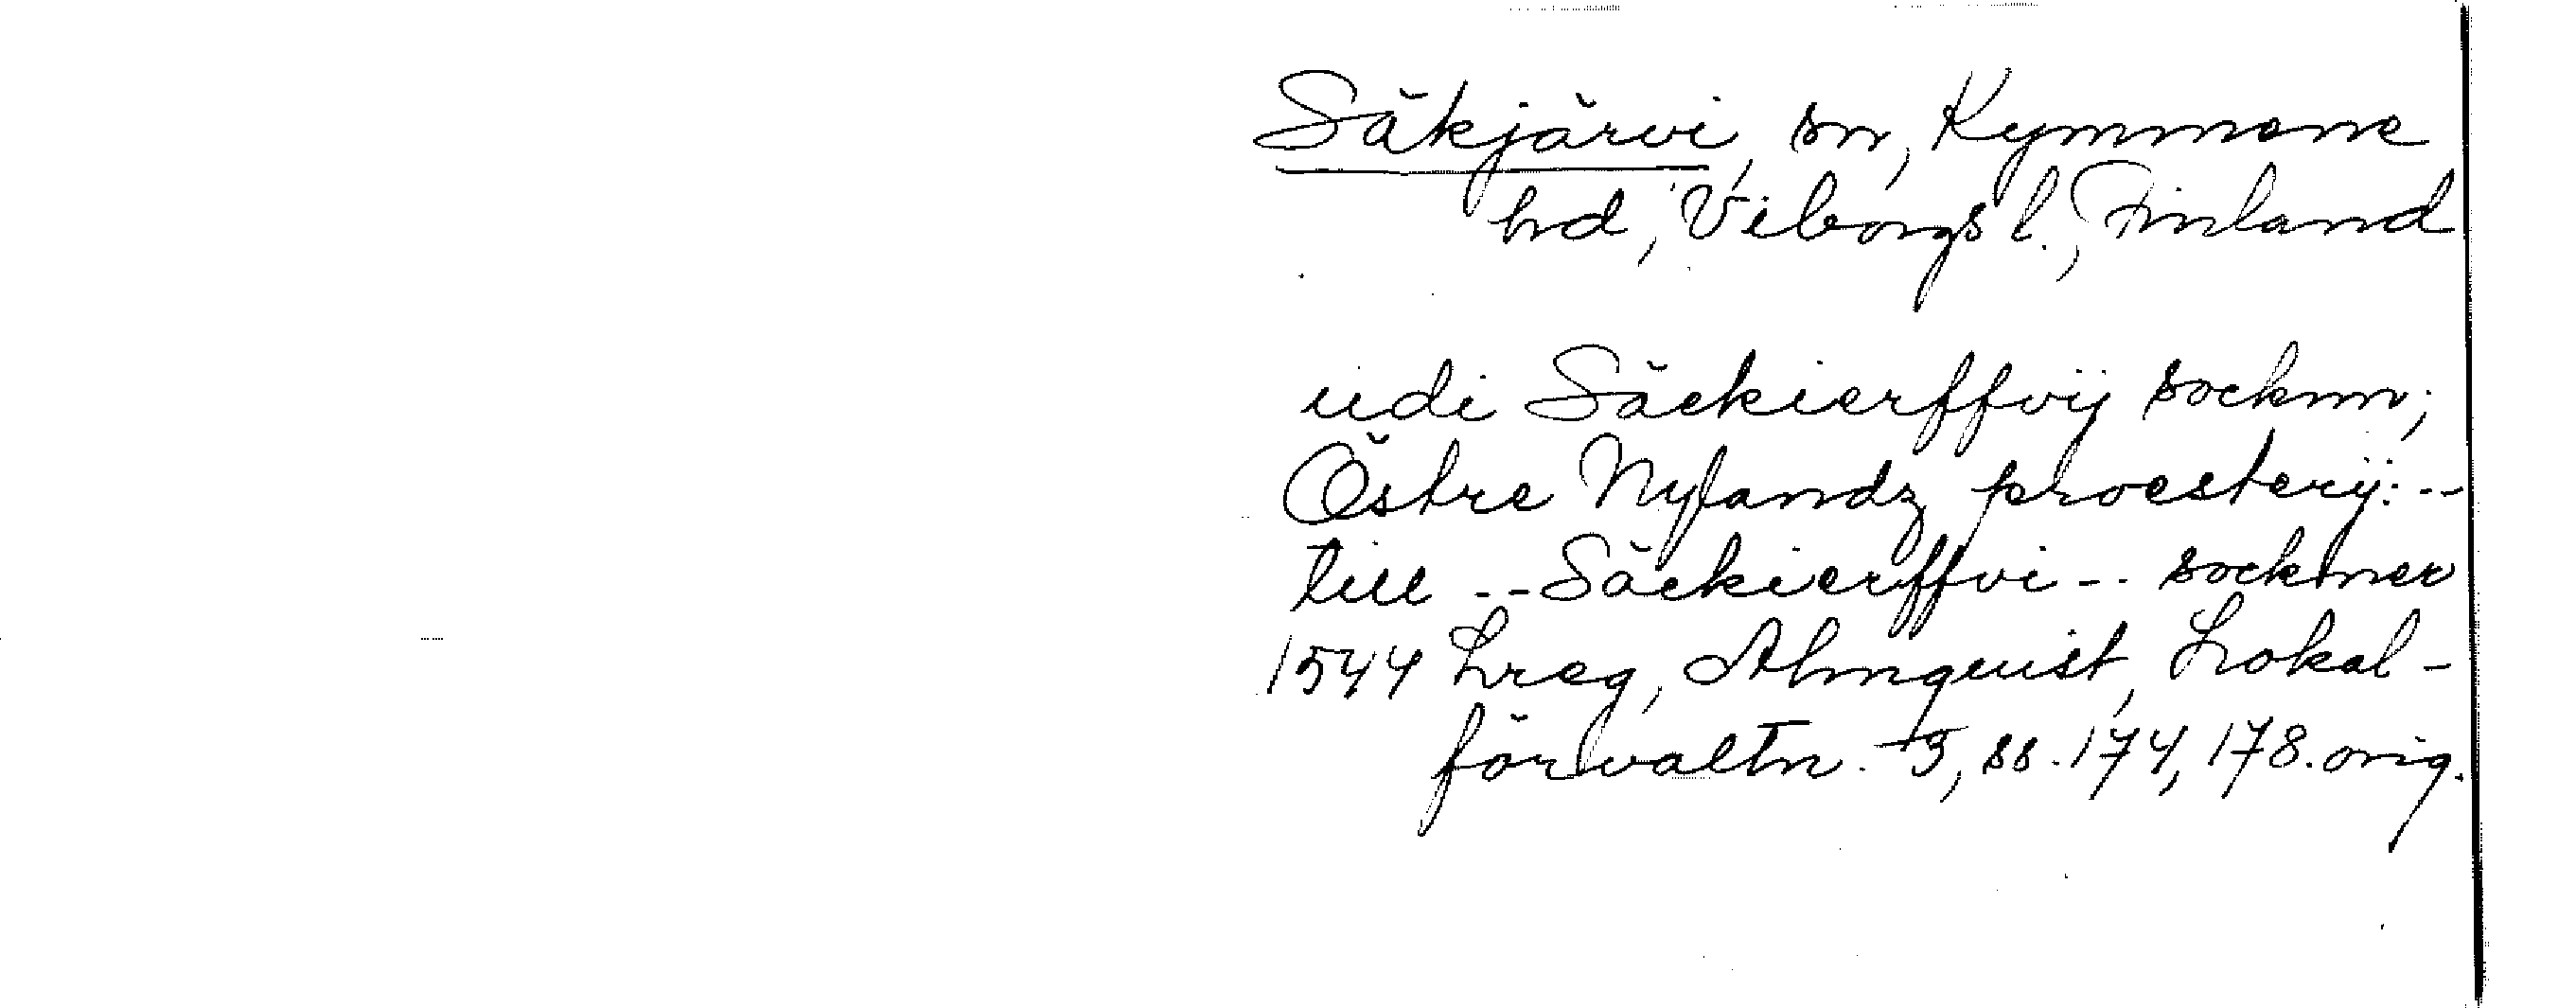 Säkjärvi, sn, Kymmene
hd, Viborgs l., Finland
udi Säckierffvij socknn;
Östre Nylandz proesterij: --
till -- Säckierffvi -- sockner
1544 Lreg, Almquist, Lokal-
förvaltn. 3, ss. 174, 178. orig.